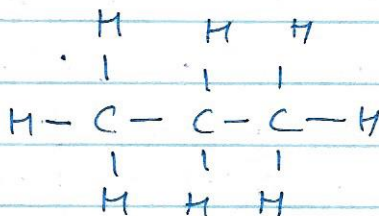 H H H
H - C - C - C - H
H H H